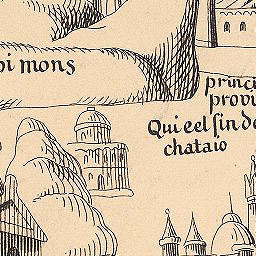 pi mons
princi
provi
Qui eel fin de
chataio